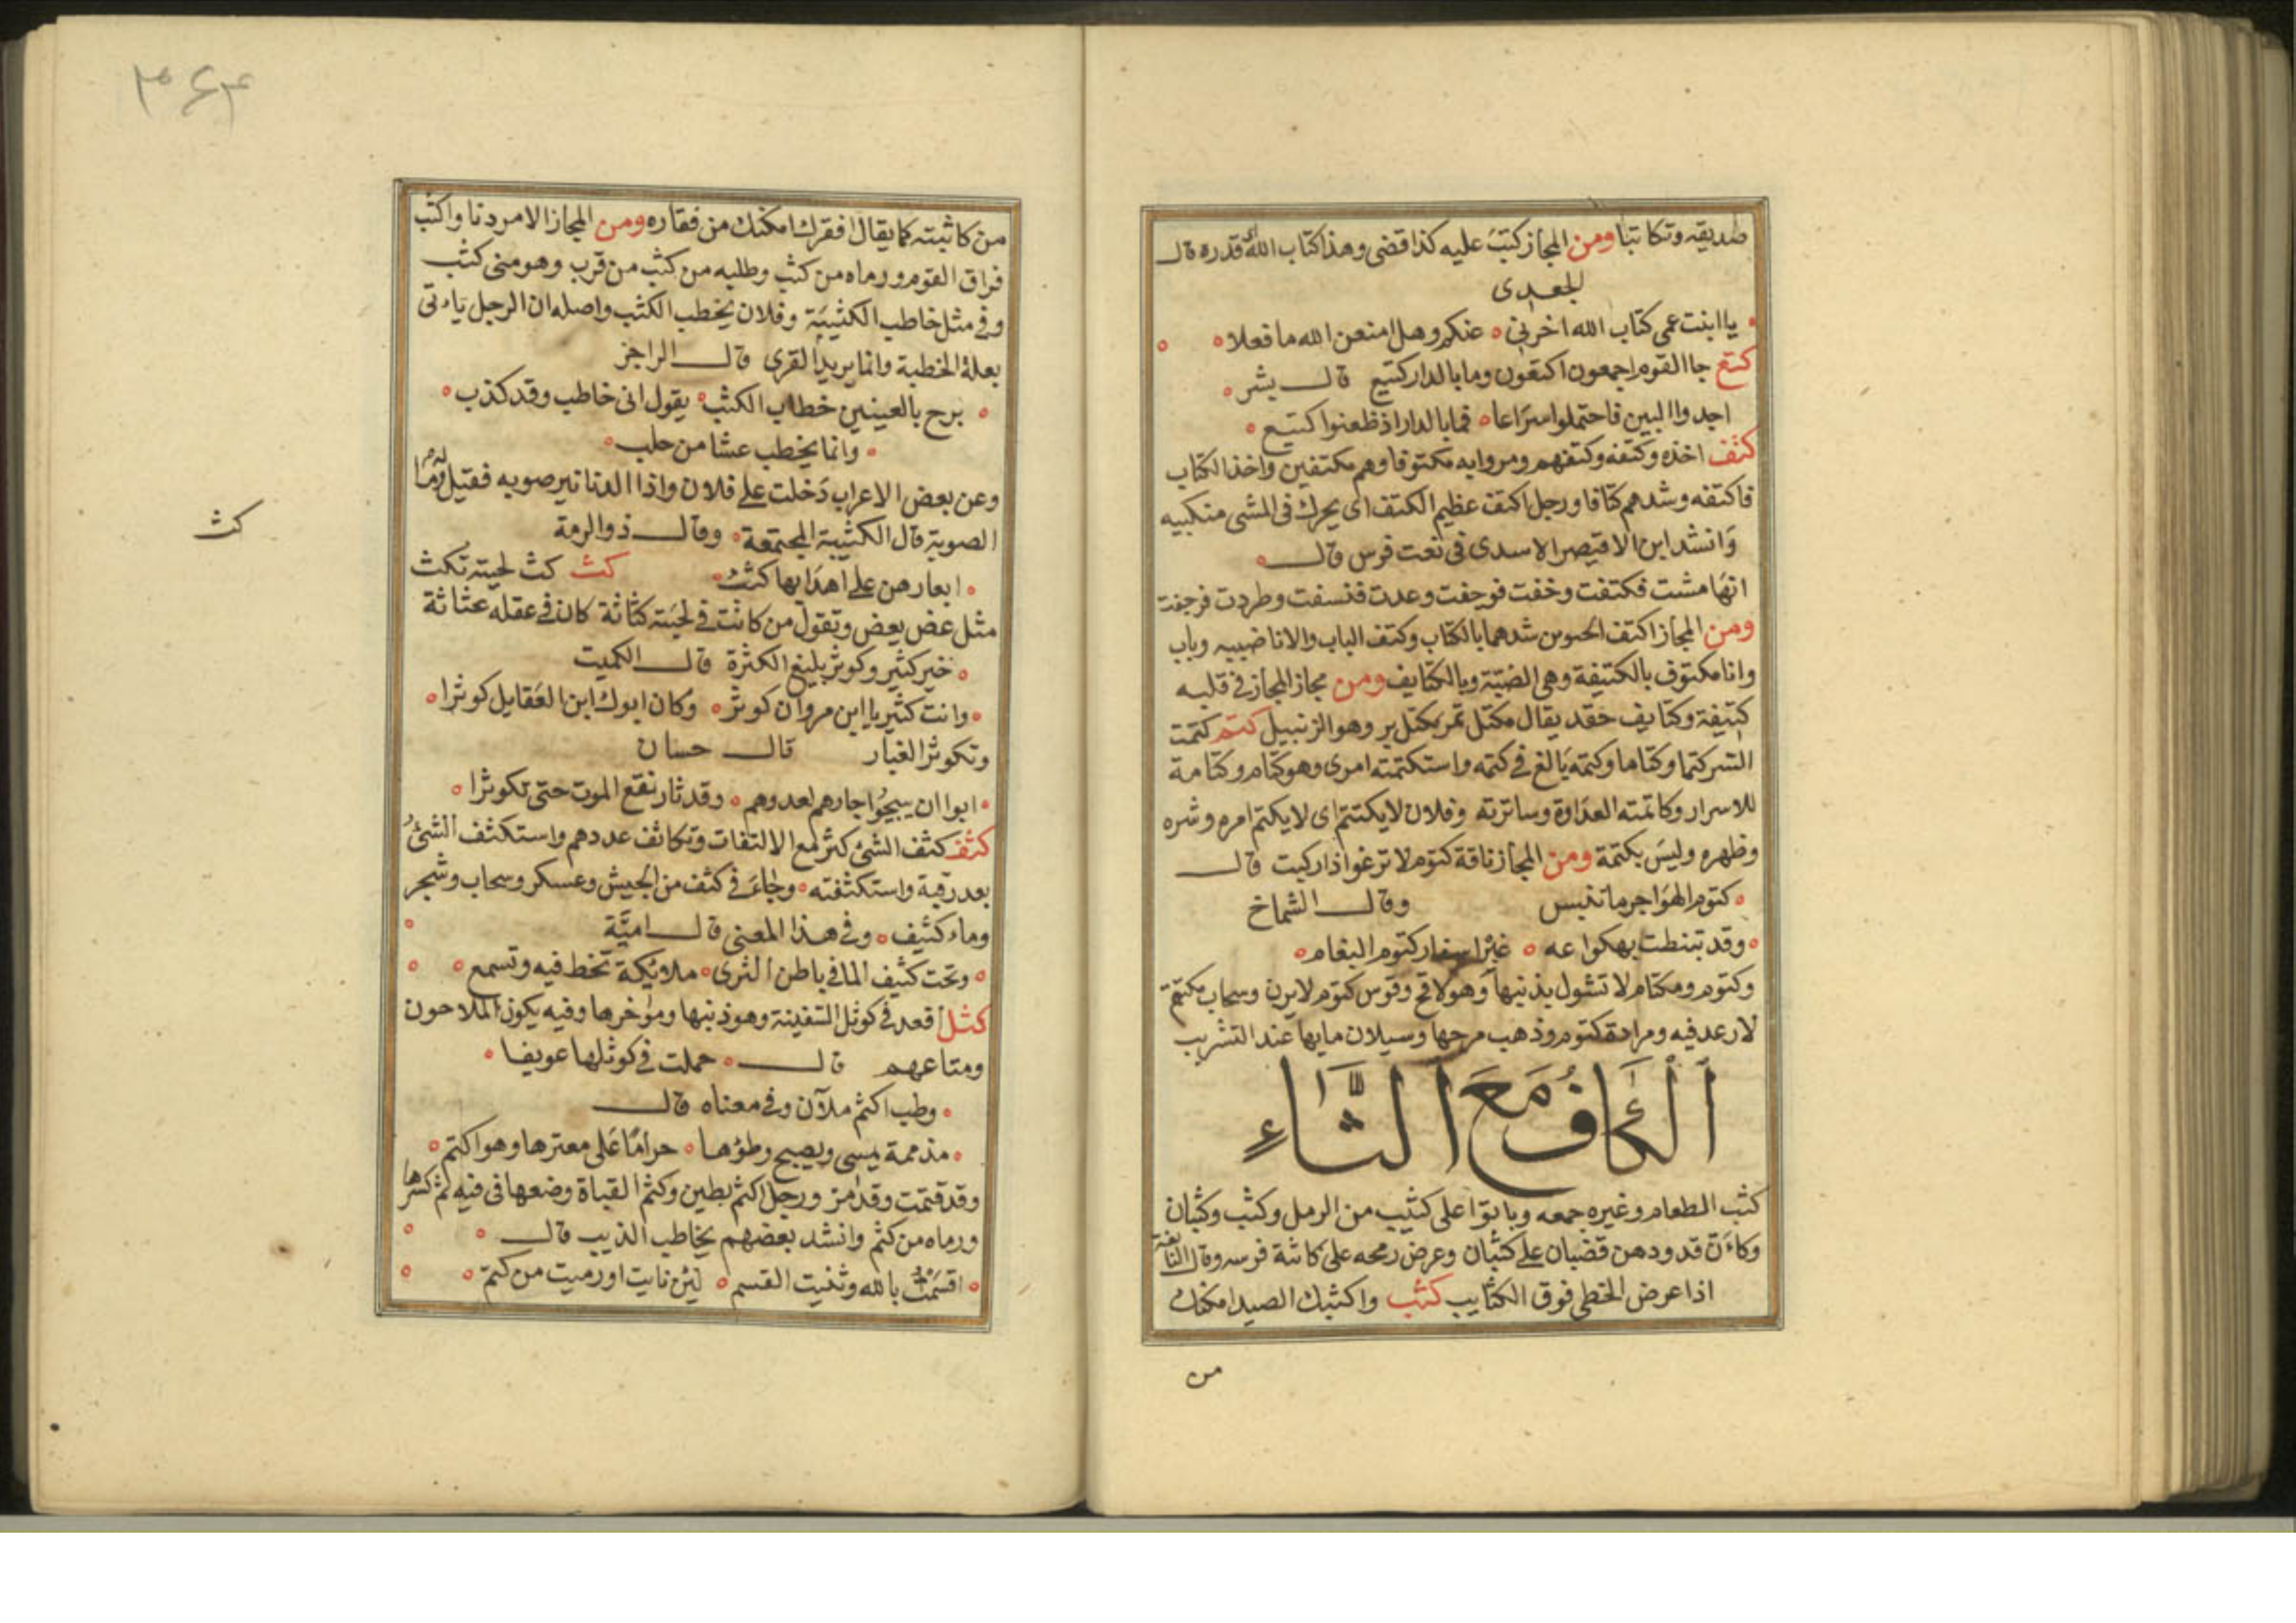 صديقه وتكاتبا ومن المجاز كتب عليه كذا قضى وهذا كتاب الله اى قدره قال
الجعدى
يا ابنت عمى كتاب الله اخرنى عنكم وهل امنعن الله ما فعلا
كتع جا القوم اجمعون اكتعون وما بالدار كتيع قال بشر
اجدوا البين فاحتملوا سراعا فما بالدار اذ ظعنوا كتيع
كتف اخذه وكتفه وكتفهم ومروا به مكتوفا وهم مكتفين واخذ الكتاب
فاكتفه وشدهم كتافا ورجل اكتف عظيم الكتف اى يحرك فى المشى منكبيه
وانشد ابن الاقيصر الاسدى فى نعت فرس قال
انها مشت فكتفت وخفت فوجفت وعدت فنسفت وطردت فرجفت
ومن المجاز اكتف الحوين شدهما بالكتاب وكتف الباب والانا ضببه وباب
وانا مكتوف بالكتيفة وهى الضبة وبالكتايف ومن مجاز المجاز فى قلبه
كتيفة وكتايف حقد يقال مكتل تمر بمكتل بر وهو الزنبيل كتم كتمت
السر كتما وكتاما وكتمه بالغ فى كتمه واستكتمته امرى وهو كتام وكتامة
للاسرار وكاتمته العداوة وساترته وفلان لا يكتتم اى لا يكتم امره وشره
وظهره وليس بكتمة ومن المجاز ناقة كتوم لا ترغوا اذا ركبت قال
كتوم الهواجر ما تنبس وقال الشماخ
وقد تبنطت بهكواعه غيرا سفار كتوم البغام
وكتوم ومكتام لا تشول بذنبها وهو لاقح وقوس كتوم لا يرن وسحاب مكتتم
لا رعد فيه ومرادة كتوم وذهب مرجها وسيلان مايها عند التشريب
الكاف مع الثاء
كثب الطعام وغيره جمعه وباتوا على كثيب من الرمل وكثب وكثبان
وكان قدودهن قضبان على كثبان وعرض رمحه على كاثبة فرسه وقال النابغة
اذا عرض الخطى فوق الكثايب كثب واكثبك الصيد امكنك
من
٣٦٣
من كاثبته كما يقال افقرك امكنك من فقاره ومن المجاز الامر دنا واكثب
فراق القوم ورماه من كثب وطلبه من كثب من قرب وهو منى كثب
وفى مثل خاطب الكثيبة وفلان يخطب الكثب واصله ان الرجل ياءتى
بعلة الخطبة وانما يريد القرى قال الراجز
برح بالعينين خطاب الكثب يقول انى خاطب وقد كذب
وانما يخطب عشا من حلب
وعن بعض الاعراب دخلت على فلان واذا الدنانير صوبه فقيل له وما
الصوبة قال الكثيبة المجتمعة وقال ذو الرمة
ابعارهن على اهدابها كثب كث كث لحيته تكث
مثل عض يعض وتقول من كانت فى لحيته كثاثة كان فى عقله عثاثة
خير كثير وكوثر بليغ الكثرة قال الكميت
وانت كثير يا ابن مروان كوثر وكان ابوك ابن العقايل كوثرا
وتكوثر الغبار قال حسان
ابوا ان يبيحوا جارهم لعدوهم وقد ثار نقع الموت حتى تكوثرا
كثف كثف الشئ كثر مع الالتفات وتكاثف عددهم واستكثف الشئ
بعد رقية واستكثفته وجاء فى كثف من الجيش وعسكر وسحاب وشجر
وماء كثيف وفى هذا المعنى قال امية
وتحت كثيف الما فى باطن الثرى ملايكة تخط فيه وتسمع
كثل اقعد فى كوثل السفينة وهو ذنبها وموخرها وفيه يكون الملاحون
ومتاعهم قال حملت فى كوثلها عويفا
وطب اكثم ملآن وفى معناه قال
مذممة يمسى ويصبح وطؤها حراما على معترها وهو اكثم
وقد قثمت وقد امز ورجل اكثم بطين وكثم القباة وضعها فى فيه ثم كسرها
ورماه من كثم وانشد بعضهم يخاطب الذيب قال
اقسمت بالله وثنيت القسم لئن نايت او رميت من كثم
كث